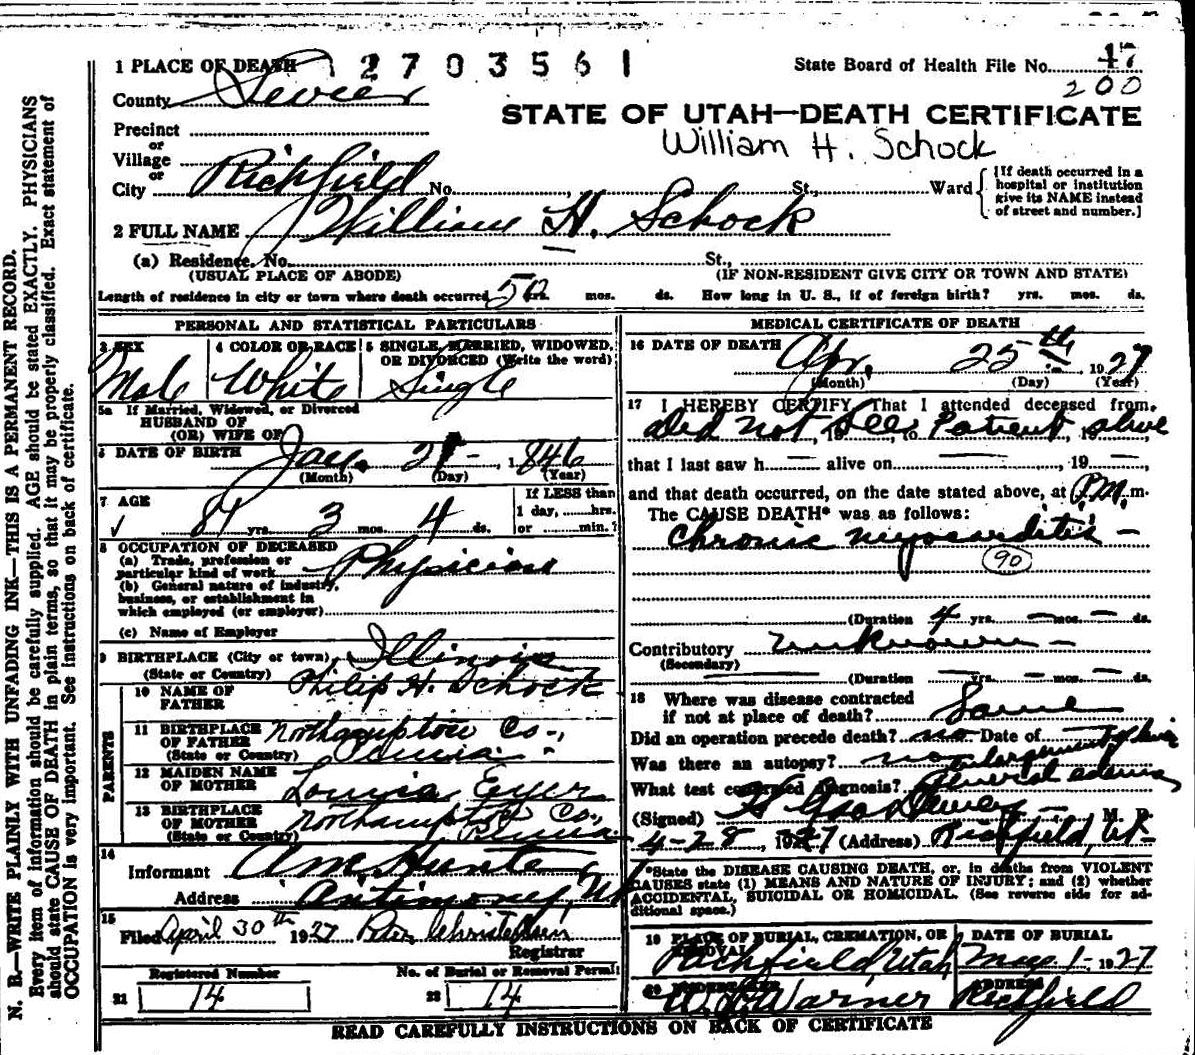 1 PLACE OF DEATH 2703561 State Board of Health File No. 47
200
County Sevier
STATE OF UTAH—DEATH CERTIFICATE
Precinct
William H. Schock
or
Village
or
City Richfield No. St., Ward
[If death occurred in a
hospital or institution
give its NAME instead
of street and number.]
2 FULL NAME William H. Schock
(a) Residence. No. St.,
(USUAL PLACE OF ABODE) (IF NON-RESIDENT GIVE CITY OR TOWN AND STATE)
Length of residence in city or town where death occurred 50 yrs. mos. ds. How long in U. S., if of foreign birth? yrs. mos. ds.
PERSONAL AND STATISTICAL PARTICULARS
3 SEX 4 COLOR OR RACE 5 SINGLE, MARRIED, WIDOWED,
OR DIVORCED (Write the word)
Male White Single
5a If Married, Widowed, or Divorced
HUSBAND OF
(OR) WIFE OF
6 DATE OF BIRTH Jan. 1846
(Month) (Day) (Year)
7 AGE yrs. 3 mos. 4 ds.
If LESS than
1 day, hrs.
or min.?
8 OCCUPATION OF DECEASED
(a) Trade, profession or
particular kind of work Physician
(b) General nature of industry,
business, or establishment in
which employed (or employer)
(c) Name of Employer
9 BIRTHPLACE (City or town) Illinois
(State or Country)
PARENTS
10 NAME OF
FATHER Philip H. Schock
11 BIRTHPLACE
OF FATHER Northampton Co.,
(State or Country) Penna.
12 MAIDEN NAME
OF MOTHER Louisa Eyer
13 BIRTHPLACE
OF MOTHER Northampton Co.,
(State or Country) Penna
14
Informant
Address Antimony, Ut
15
Filed April 30th 1927 Peter Christensen
Registrar
Registered Number No. of Burial or Removal Permit
22 14 23 14
MEDICAL CERTIFICATE OF DEATH
16 DATE OF DEATH Apr. 25th 1927
(Month) (Day) (Year)
17 I HEREBY CERTIFY, That I attended deceased from
Did not see Patient alive
that I last saw h alive on , 19
and that death occurred, on the date stated above, at P.M. m.
The CAUSE DEATH* was as follows:
Chronic myocarditis –
90
(Duration 4 yrs. — mos. — ds.
Contributory unknown –
(Secondary)
(Duration — yrs. — mos. — ds.
18 Where was disease contracted
if not at place of death? Same
Did an operation precede death? no Date of
Was there an autopsy? no enlargement of liver
What test confirmed diagnosis? General edema
(Signed) M. D.
4-28, 1927 (Address) Richfield, Ut.
*State the DISEASE CAUSING DEATH, or, in deaths from VIOLENT
CAUSES state (1) MEANS AND NATURE OF INJURY; and (2) whether
ACCIDENTAL, SUICIDAL OR HOMICIDAL. (See reverse side for ad-
ditional space.)
19 PLACE OF BURIAL, CREMATION, OR DATE OF BURIAL
REMOVAL
Richfield, Utah May 1- 1927
20 UNDERTAKER ADDRESS
Warner Richfield
READ CAREFULLY INSTRUCTIONS ON BACK OF CERTIFICATE
N. B.—WRITE PLAINLY WITH UNFADING INK—THIS IS A PERMANENT RECORD.
Every item of information should be carefully supplied. AGE should be stated EXACTLY. PHYSICIANS
should state CAUSE OF DEATH in plain terms, so that it may be properly classified. Exact statement of
OCCUPATION is very important. See instructions on back of certificate.